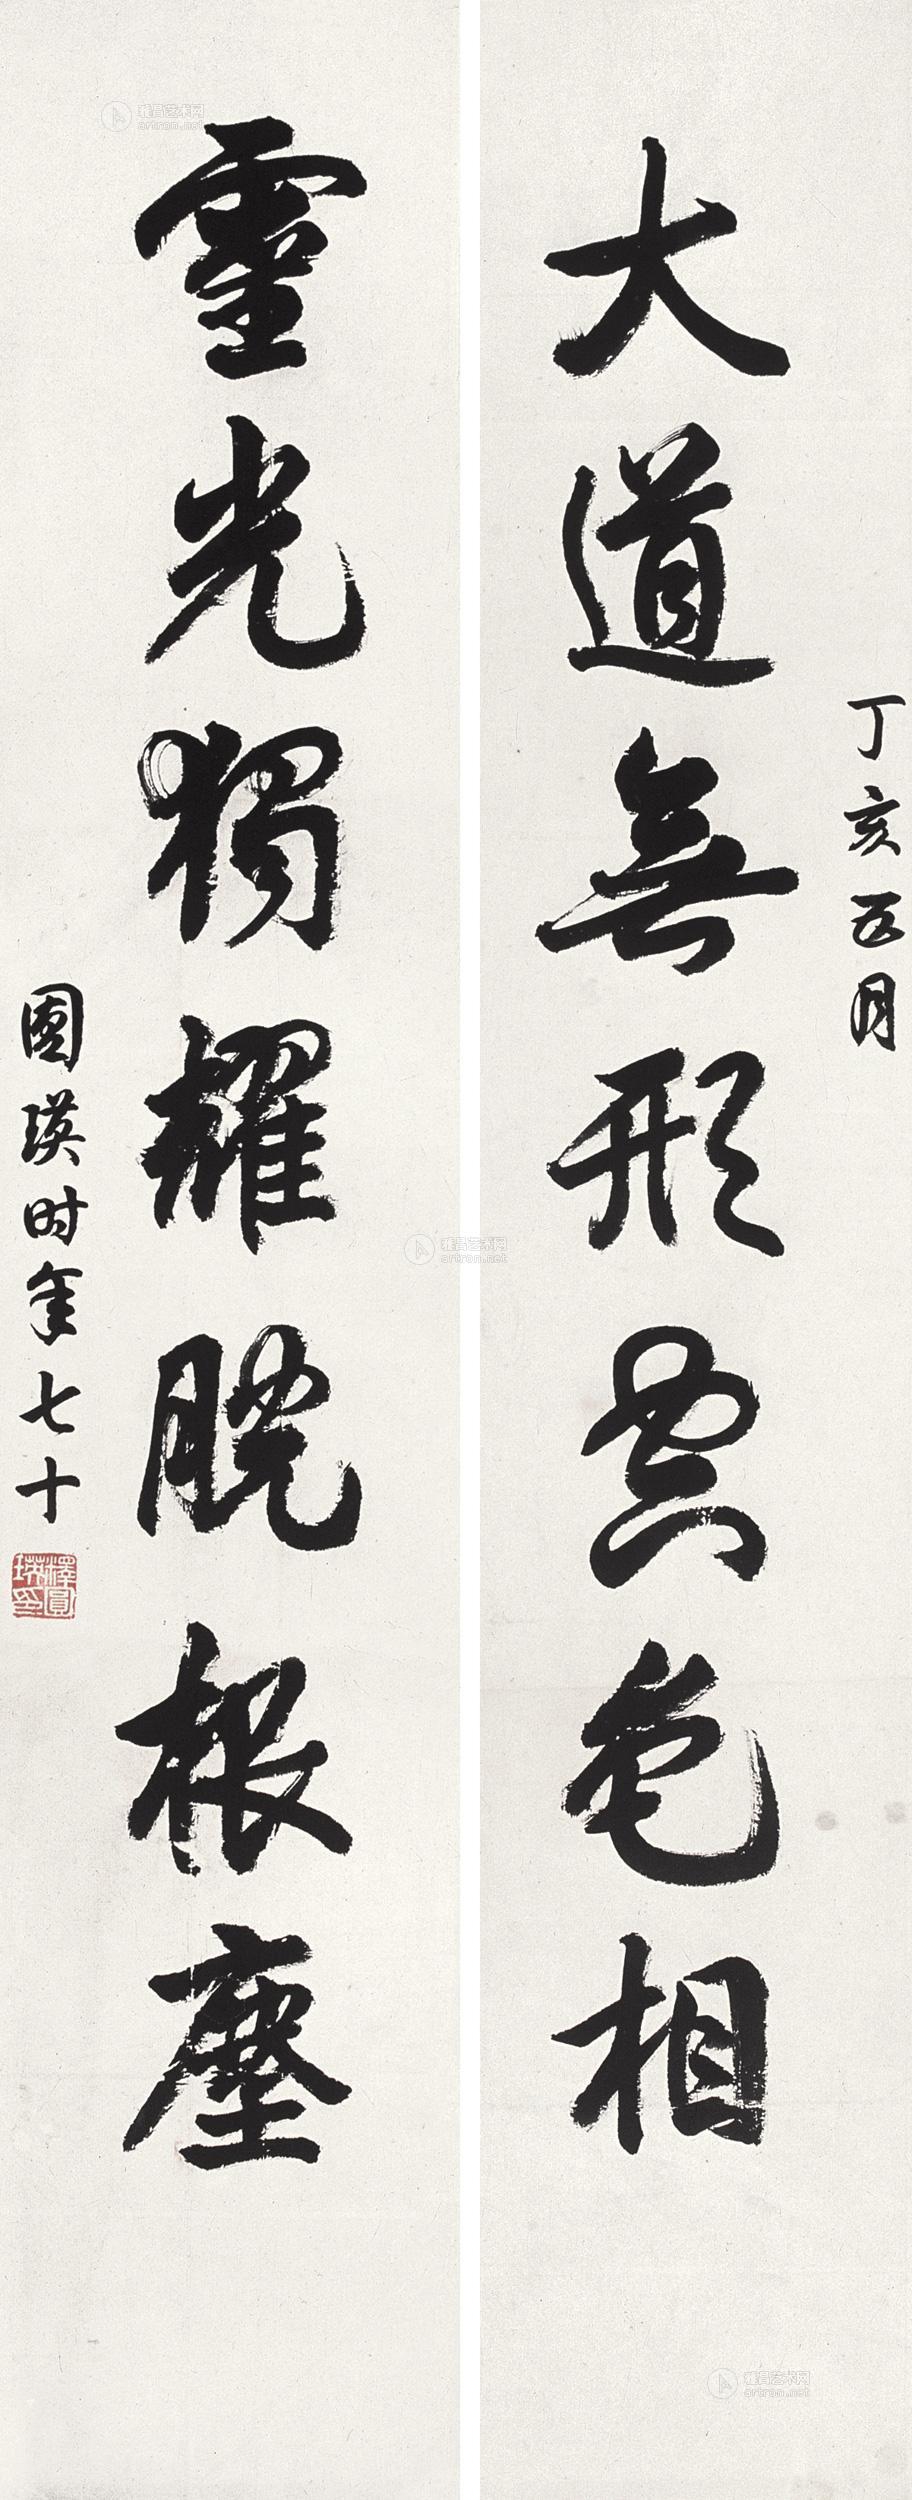 丁亥五月
大道無形空色相
靈光獨耀脫根塵
圓瑛时年七十
釋圓瑛印
雅昌艺术网
artron.net
雅昌艺术网
artron.net
雅昌艺术网
artron.net